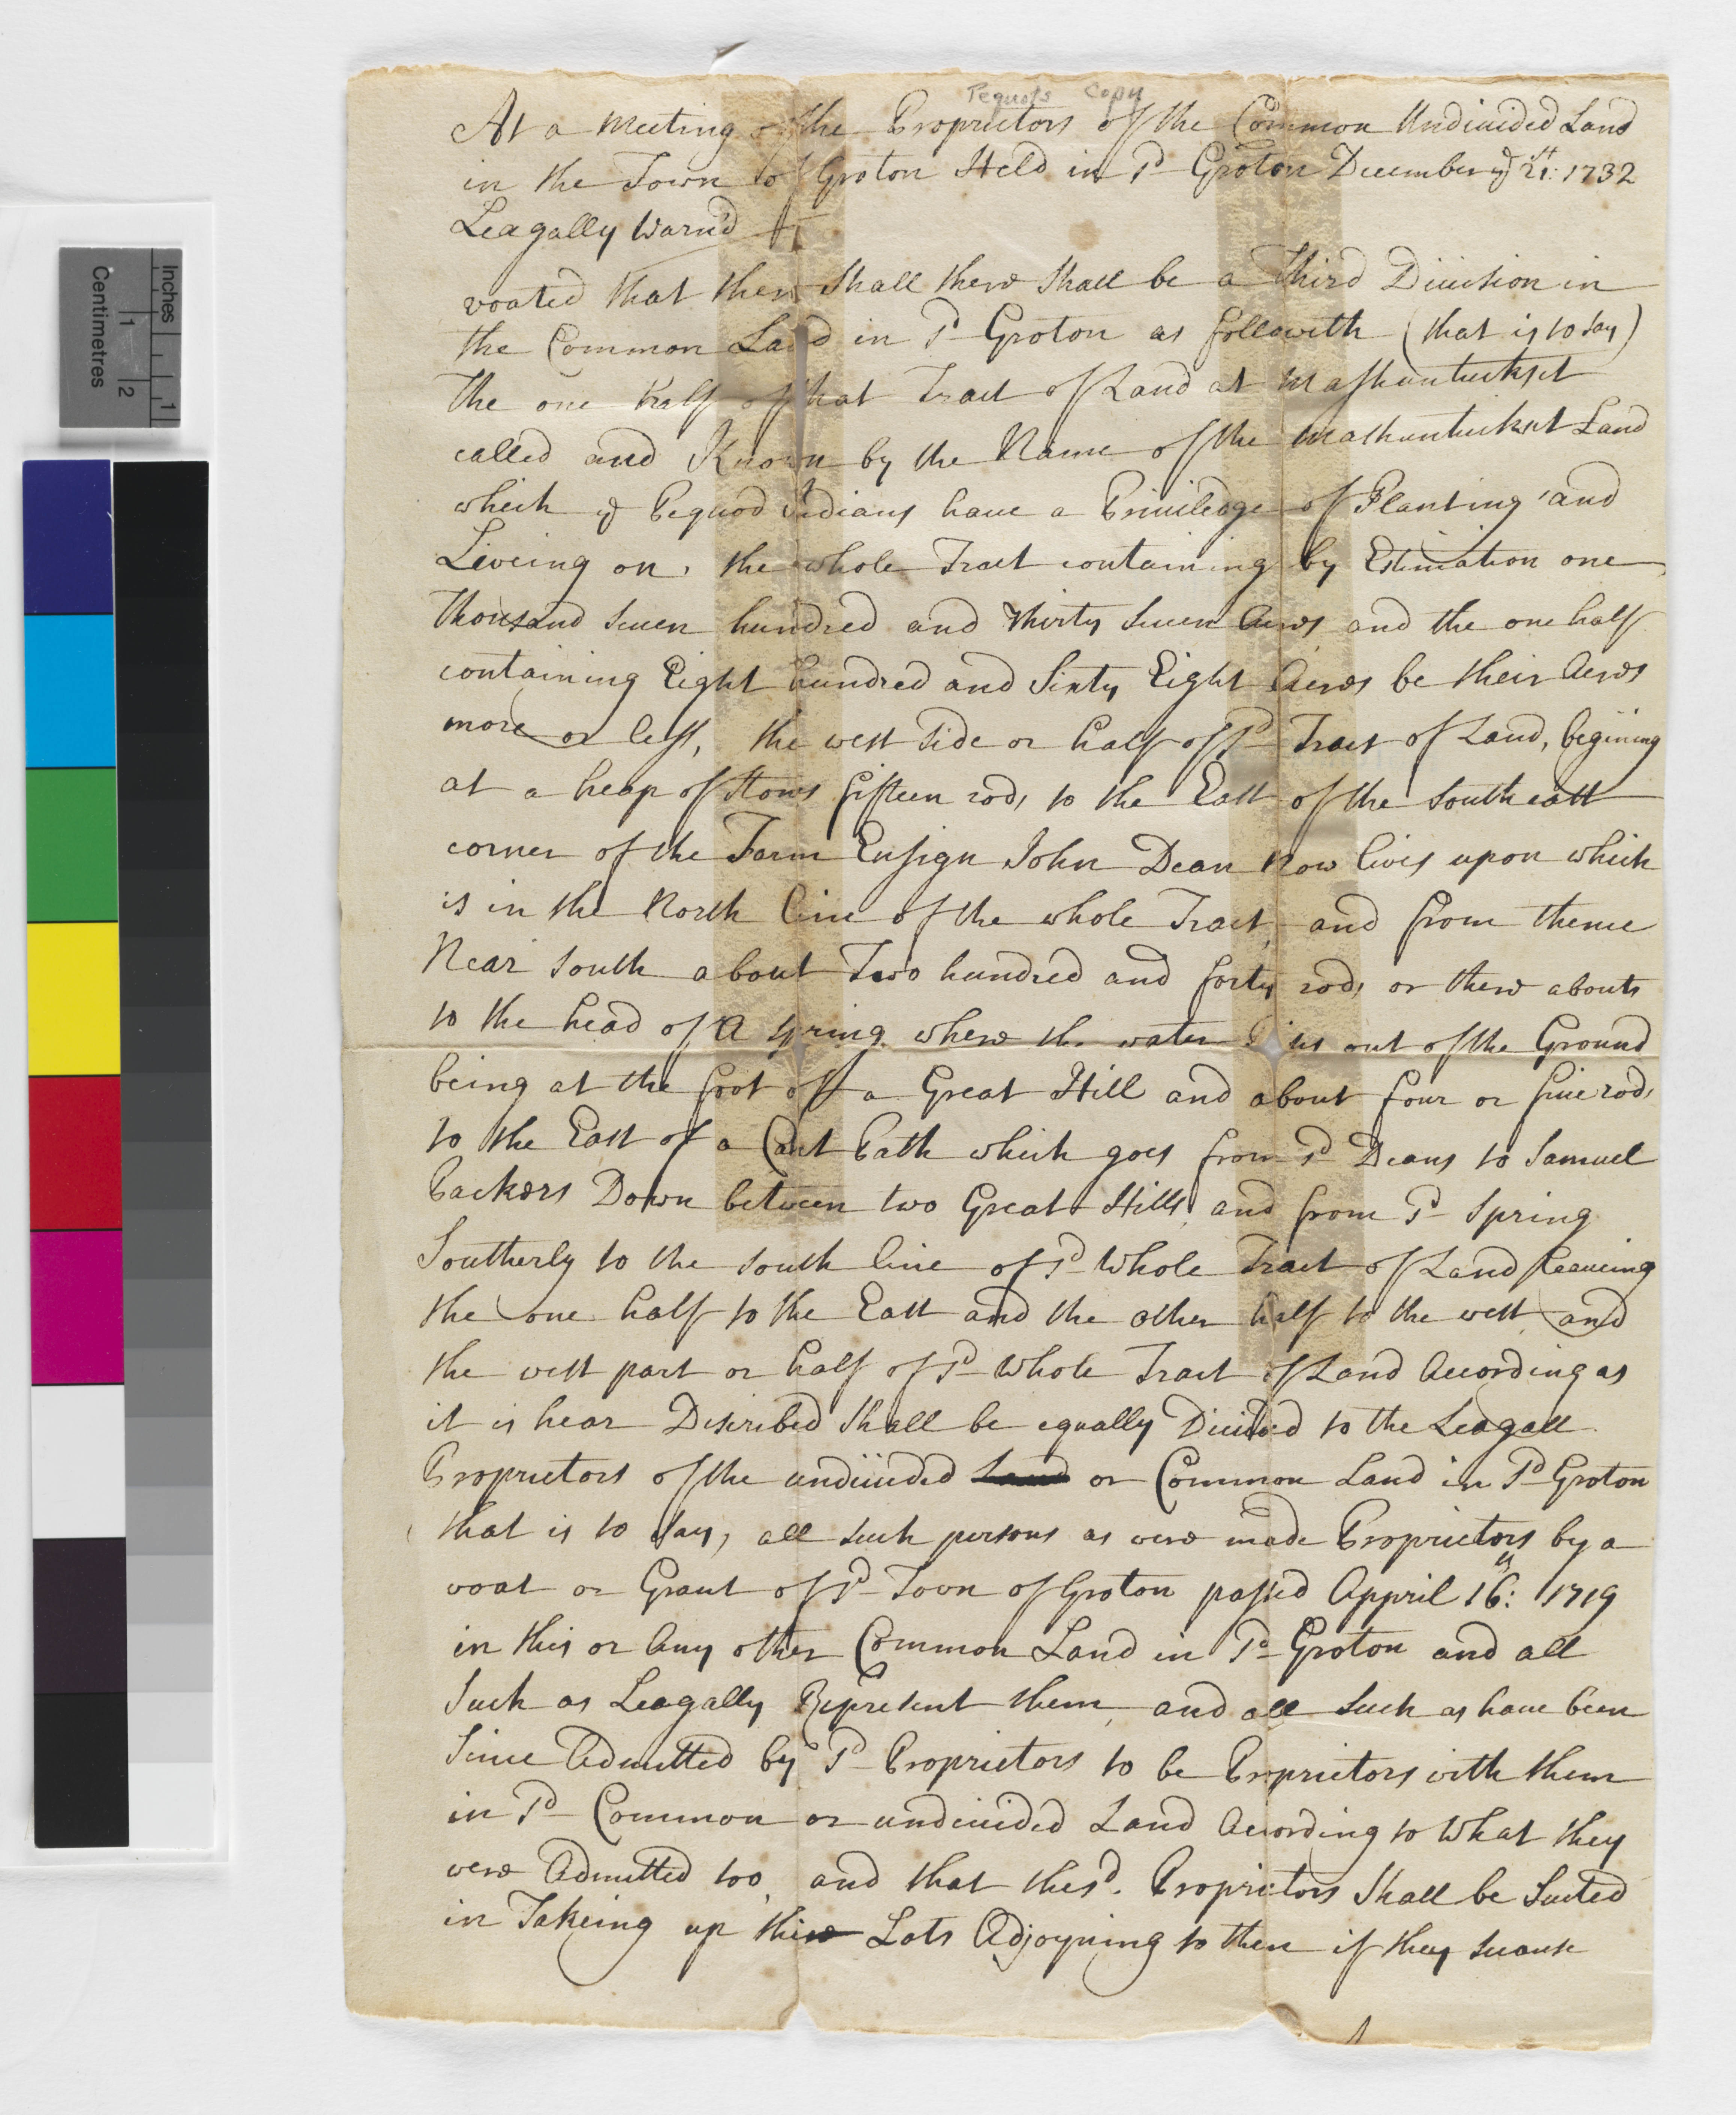 Pequots Copy
At a meeting of the Proprietors of the Common Undiuided Land
in the Town of Groton Held in sd Groton December ye 21st: 1732
Leagally Warn'd
voated that ther shall there shall be a third Diuision in
the Common Land in sd Groton as followith (that is to say)
the one half of that Tract of Land at Mashuntuckset
called and Known by the Name of the Mashuntuckset Land
which ye Pequod Indians haue a Priuiledge of Planting and
Liveing on, the whole Tract containing by Estimation one
thousand seuen hundred and thirty seuen Acres and the one half
containing Eight hundred and Sixty Eight Acres be their Acres
more or less, the west side or half of sd Tract of Land, begining
at a heap of stons fifteen rods to the East of the south east
corner of the Farm Ensign John Dean Now liues upon which
is in the North line of the whole Tract, and from thence
Near south about Two hundred and forty rods or there abouts
to the head of A Spring where the water out of the Ground
being at the foot of a Great Hill and about four or fiue rods
to the East of a Cart Path which goes from sd Deans to Samuel
Packers Down between two Great Hills, and from sd Spring
Southerly to the south line of sd Whole Tract of Land leaueing
the one half to the East and the other half to the west and
the west part or half of sd Whole Tract of Land Acording as
it is hear Discribed shall be equally Diuided to the Leagall
Proprietors of the undiuided Land or Common Land in sd Groton
that is to say, all such persons as were made Proprietors by a
voat or Grant of sd Town of Groton passed Appril 16th: 1719
in this or Any other Common Land in sd Groton and all
such as Leagally Represent them, and all such as haue been
since Admitted by sd Proprietors to be Proprietors with them
in sd Common or undiuided Land Acording to What they
were Admitted too, and that the sd. Proprietors shall be Suited
in Takeing up their Lots Adjoyning to them if they
Inches
1
Centimetres
1
2